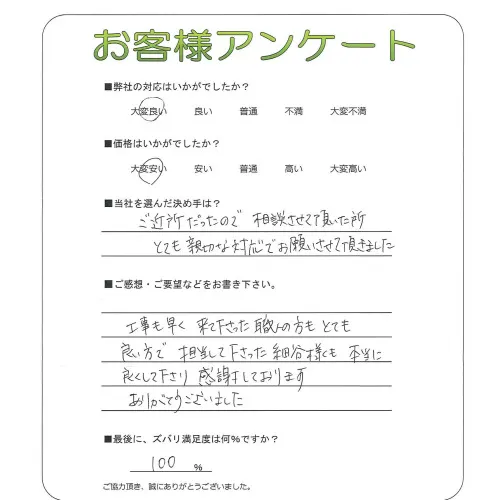 お客様アンケート
■弊社の対応はいかがでしたか?
大変良い 良い 普通 不満 大変不満
■価格はいかがでしたか?
大変安い 安い 普通 高い 大変高い
■当社を選んだ決め手は?
ご近所だったので 相談させて頂いた所
とても親切な対応でお願いさせて頂きました
■ご感想・ご要望などをお書き下さい。
工事も早く 来て下さった職人の方も とても
良い方で 担当して下さった細谷様も 本当に
良くして下さり 感謝しております
ありがとうございました
■最後に、ズバリ満足度は何%ですか?
100 %
ご協力頂き、誠にありがとうございました。